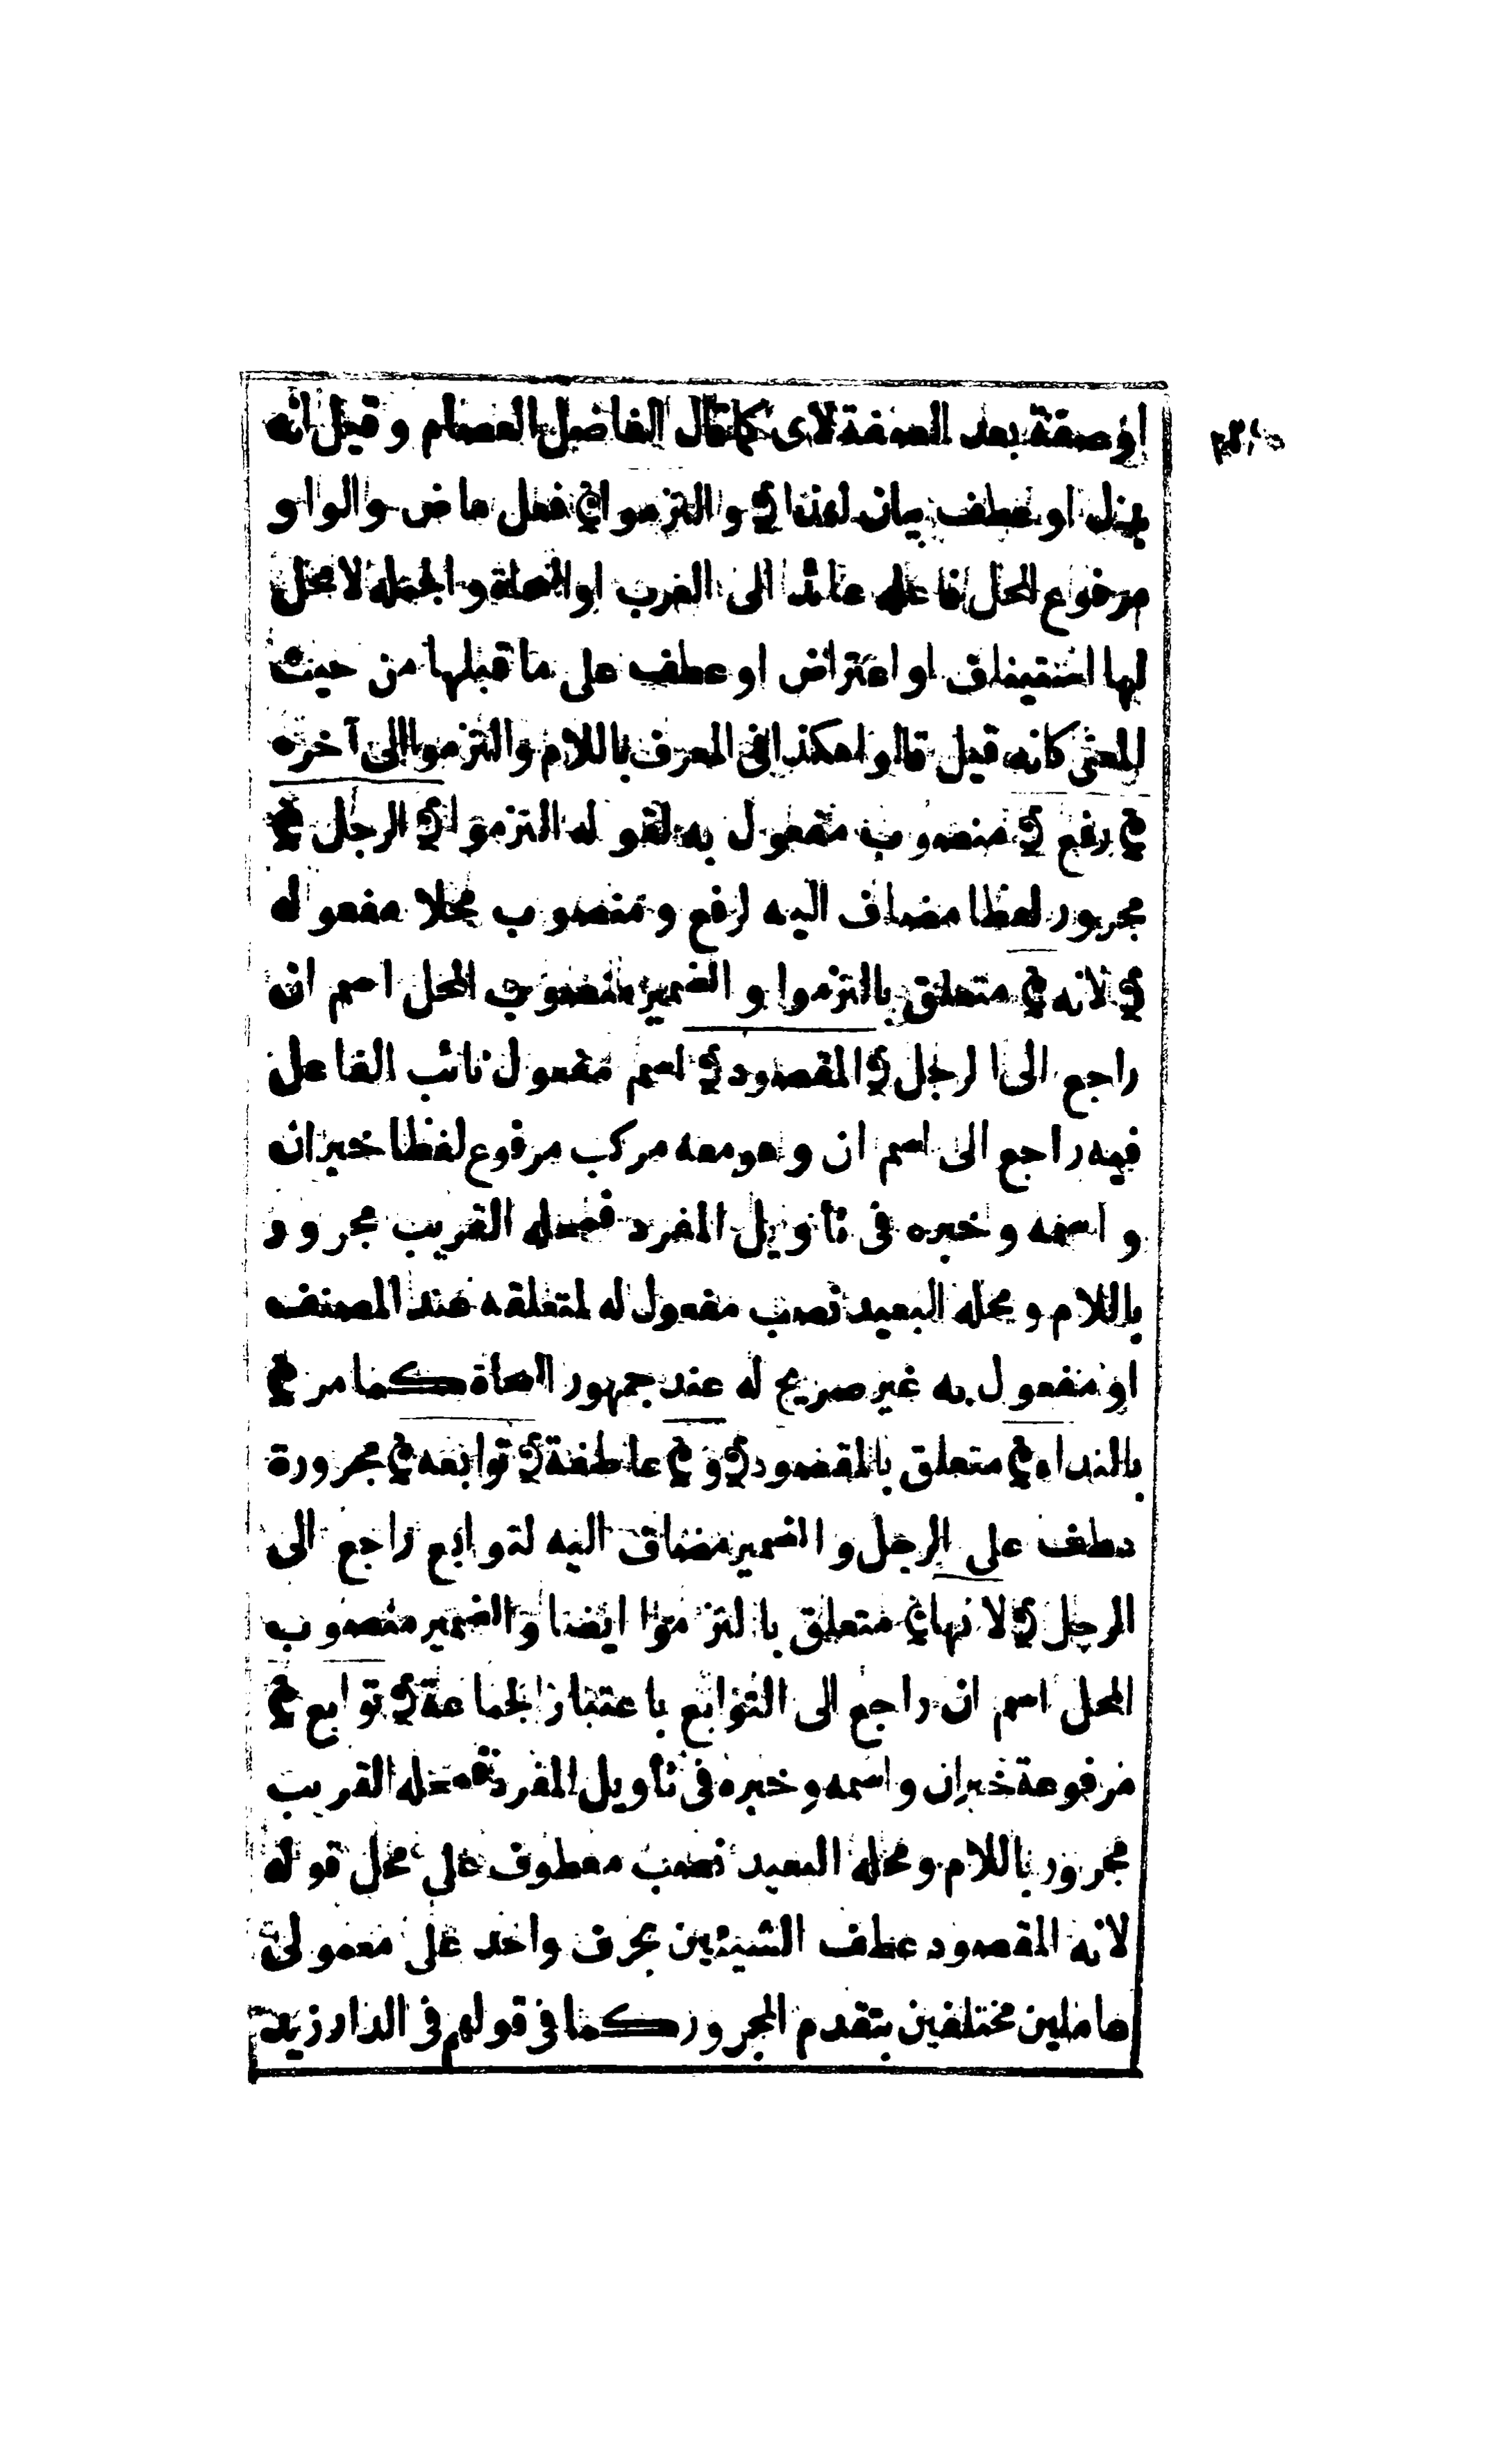 او صفة بعد الصفة لاى كما قال الفاضل العصام وقيل انه
بدل او عطف بيان لهذا ﴿ والتزموا ﴾ فعل ماض والواو
مرفوع المحل فاعله عائد الى العرب او النحاة والجملة لا محل
لها استيناف او اعتراض او عطف على ما قبلها من حيث
المعنى كانه قيل قالوا هكذا فى المعرف باللام والتزموا الى آخره
﴾ رفع ﴿ منصوب مفعول به لقوله التزموا ﴿ الرجل ﴾
مجرور لفظا مضاف اليه لرفع ومنصوب محلا مفعوله
﴿ لانه ﴾ متعلق بالتزموا والضمير منصوب المحل اسم ان
راجع الى الرجل ﴿ المقصود ﴾ اسم مفعول نائب الفاعل
فيه راجع الى اسم ان وهو معه مركب مرفوع لفظا خبر ان
واسمه وخبره فى تأويل المفرد فمحله القريب مجرور
باللام ومحله البعيد نصب مفعول له لمتعلقه عند المصنف
او مفعول به غير صريح له عند جمهور النحاة كما مر ﴾
بالنداء ﴾ متعلق بالمقصود ﴿ و ﴾ عاطفة ﴿ توابعه ﴾ مجرورة
عطف على الرجل والضمير مضاف اليه لتوابع راجع الى
الرجل ﴿ لانها ﴾ متعلق بالتزموا ايضا والضمير منصوب
المحل اسم ان راجع الى التوابع باعتبار الجماعة ﴿ توابع ﴾
مرفوعة خبر ان واسمه وخبره فى تأويل المفرد فمحله القريب
مجرور باللام ومحله البعيد نصب معطوف على محل قوله
لانه المقصود عطف الشيئين بحرف واحد على معمولى
عاملين مختلفين بتقدم المجرور كما فى قولهم فى الدار زيد